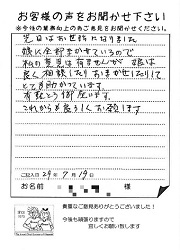 お客様の声をお聞かせ下さい
※今後の業務向上の為ご意見をお聞かせください。
先日はお世話になりました
娘に全部まかせているので
私の意見は有ませんが 娘は
良く相談したりおまかせしたりして
とても助かっています。
有難とう御座います。
これからも宜ろしくお願います
ご記入日 29年 7月 19日
お名前
貴重なご意見ありがとうございました！
今後も頑張りますので
宜しくお願い致します